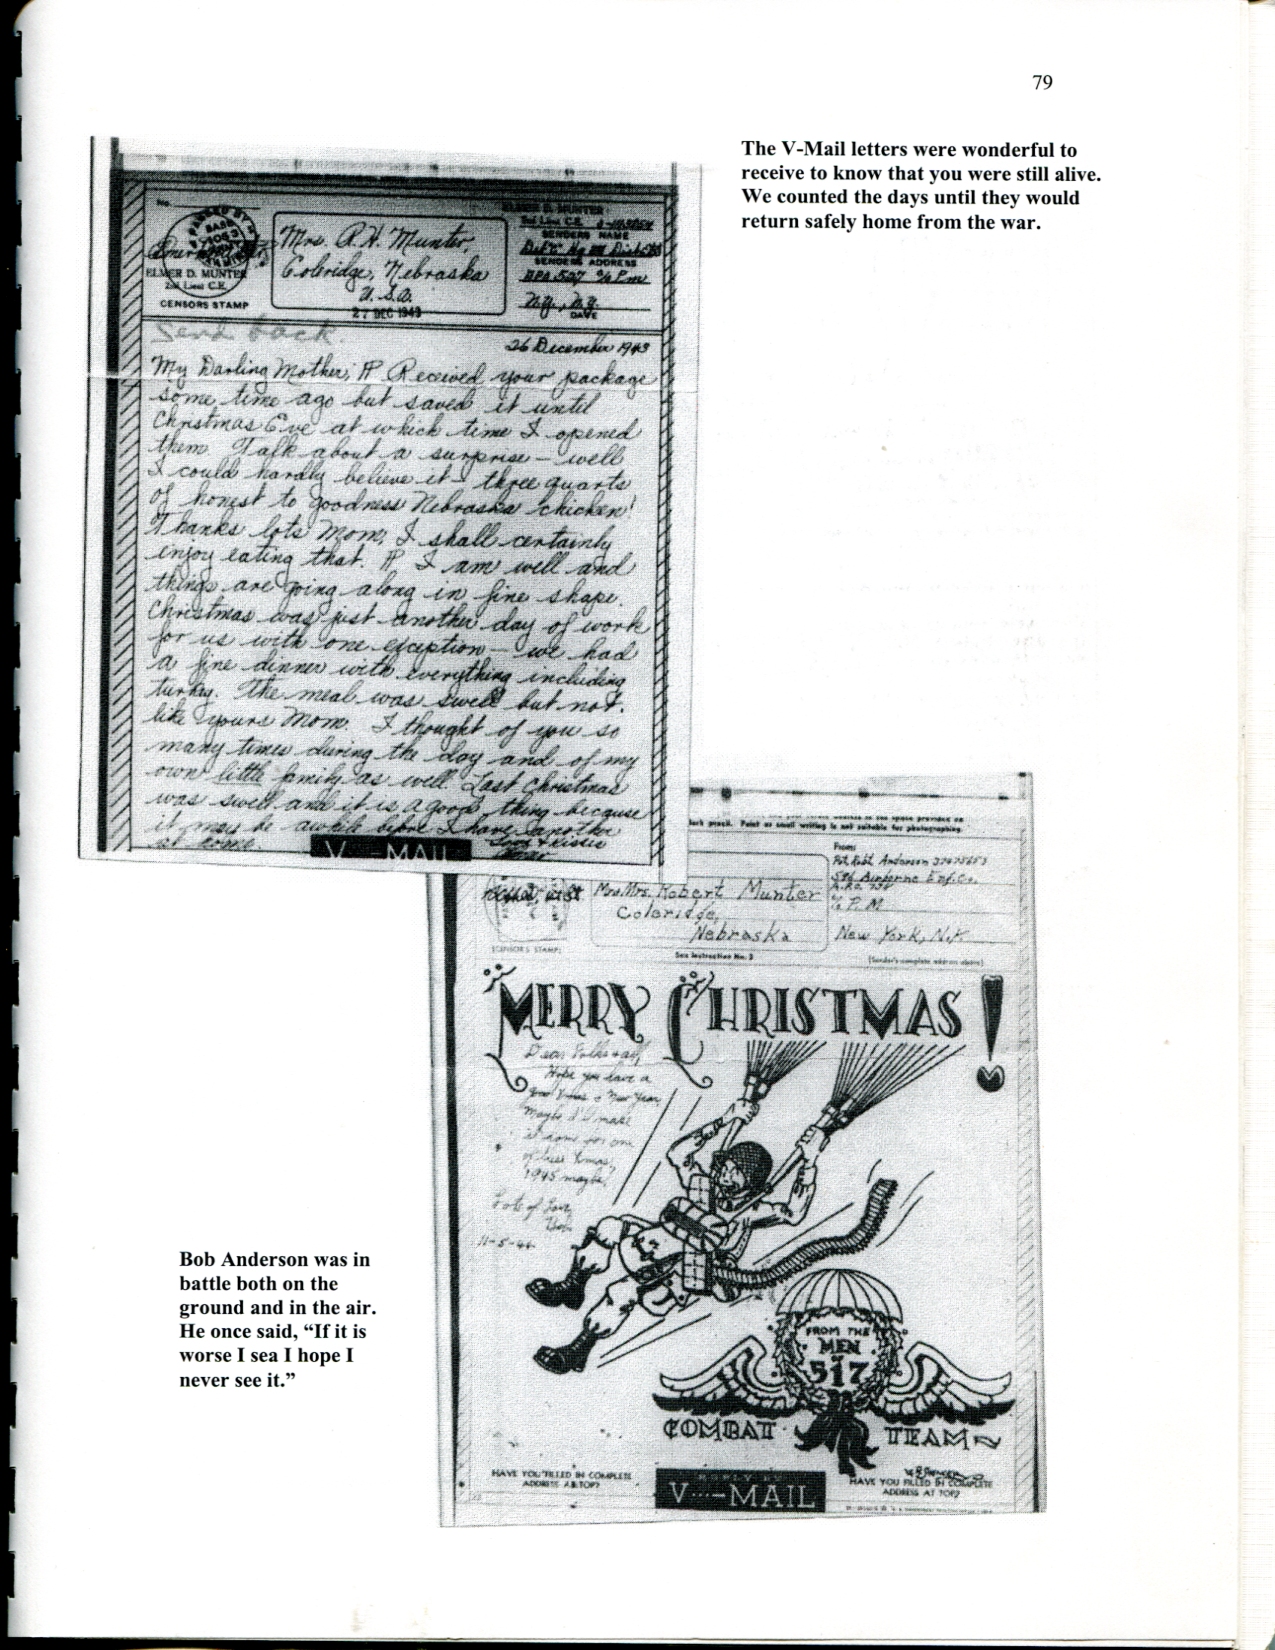 79
The V-Mail letters were wonderful to
receive to know that you were still alive.
We counted the days until they would
return safely home from the war.
No.
ELMER D. MUNTER
2nd Lieut C.E.
CENSORS STAMP
Mrs. A.H. Munter,
Coleridge, Nebraska
U.S.A.
27 DEC 1943
ELMER D. MUNTER
2nd Lieut C.E.
SENDERS NAME
SENDERS ADDRESS
APO 527 c/o P.m
N.Y., N.Y.
DATE
Send back.
26 December 1943
My Darling Mother; ¶ Received your package
some time ago but saved it until
Christmas Eve at which time I opened
them. Talk about a surprise – well
I could hardly believe it – three quarts
of honest to goodness Nebraska chicken!
Thanks lots Mom, I shall certainly
enjoy eating that. ¶ I am well and
things are going along in fine shape.
Christmas was just another day of work
for us with one exception – we had
a fine dinner with everything including
turkey. The meal was swell but not
like yours Mom. I thought of you so
many times during the day and of my
own little family as well. Last Christmas
was swell and it is a good thing because
it may be awhile before I have another
at home.
Love & Kisses
Elmer
V···–MAIL
lack pencil. Paint or small writing is not suitable for photographing.
Mrs. Robert Munter
Coleridge,
Nebraska
From:
Pvt. Robt Anderson
596 Airborne Eng. Co.
c/o P.M
New York, N.Y.
(CENSOR'S STAMP)
See Instruction No. 2
(Sender's complete address above)
MERRY CHRISTMAS!
Dear Folks & all
Hope you have a
good Xmas & New Year
Maybe I'll make
it home for one
of these Xmas,
1945 maybe,
Lots of Love
11-5-44
FROM THE
MEN
OF
517
COMBAT TEAM
HAVE YOU FILLED IN COMPLETE
ADDRESS AT TOP?
REPLY BY
V···–MAIL
HAVE YOU FILLED IN COMPLETE
ADDRESS AT TOP?
Bob Anderson was in
battle both on the
ground and in the air.
He once said, “If it is
worse I sea I hope I
never see it.”